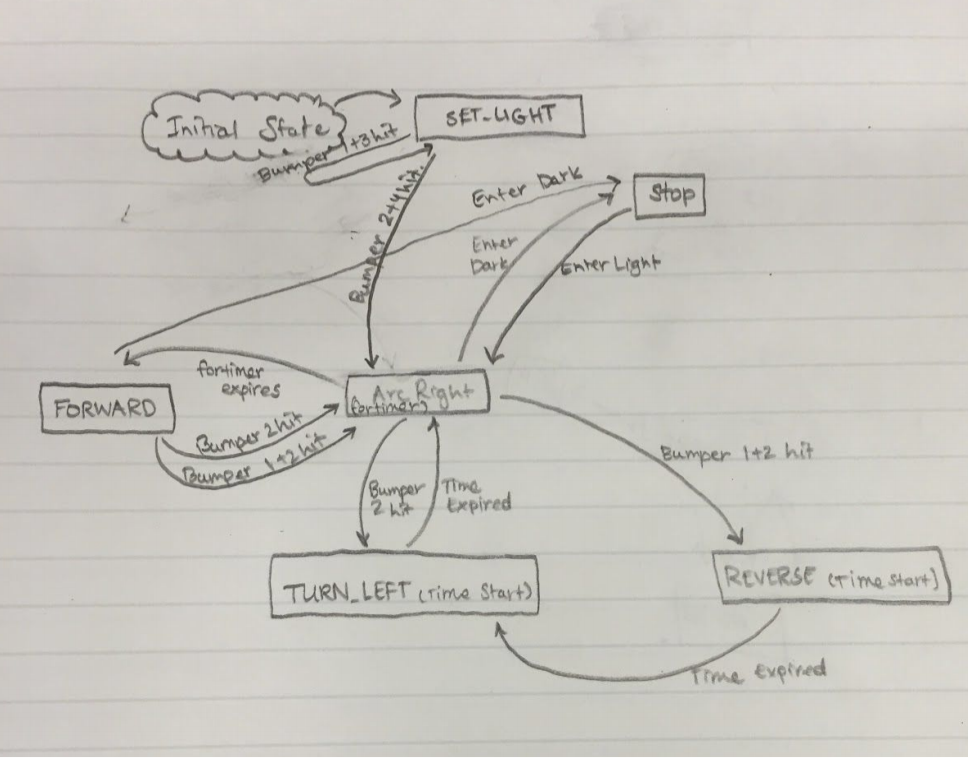 Initial State
SET-LIGHT
Bumper 1+3 hit
Bumper 2+4 hit.
Enter Dark
Stop
Enter
Dark
Enter Light
fortimer
expires
Arc Right
(fortimer)
FORWARD
Bumper 2 hit
Bumper 1+2 hit
Bumper 1+2 hit
Bumper
2 hit
Time
Expired
TURN_LEFT (Time Start)
REVERSE (Time Start)
Time Expired